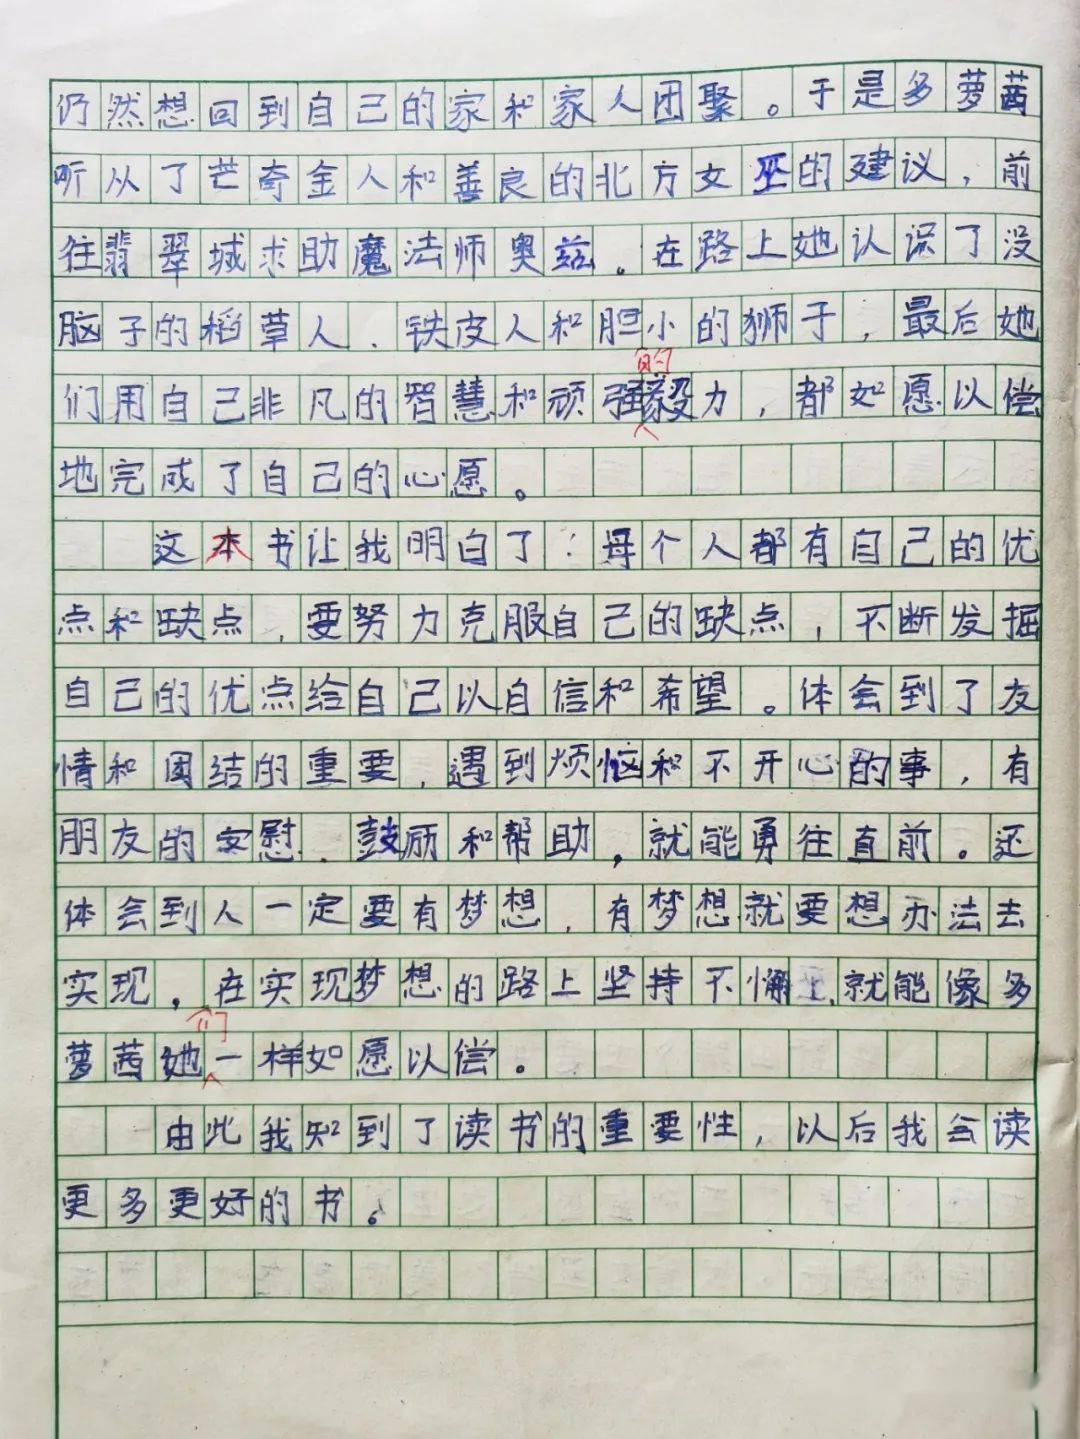 仍然想回到自己的家和家人团聚。于是多萝茜
听从了芒奇金人和善良的北方女巫的建议，前
往翡翠城求助魔法师奥兹。在路上她认识了没
脑子的稻草人、铁皮人和胆小的狮子，最后她
们用自己非凡的智慧和顽强的毅力，都如愿以偿
地完成了自己的心愿。
这本书让我明白了：每个人都有自己的优
点和缺点，要努力克服自己的缺点，不断发掘
自己的优点给自己以自信和希望。体会到了友
情和团结的重要，遇到烦恼和不开心的事，有
朋友的安慰、鼓励和帮助，就能勇往直前。还
体会到人一定要有梦想，有梦想就要想办法去
实现，在实现梦想的路上坚持不懈，就能像多
萝茜她们一样如愿以偿。
由此我知到了读书的重要性，以后我会读
更多更好的书。